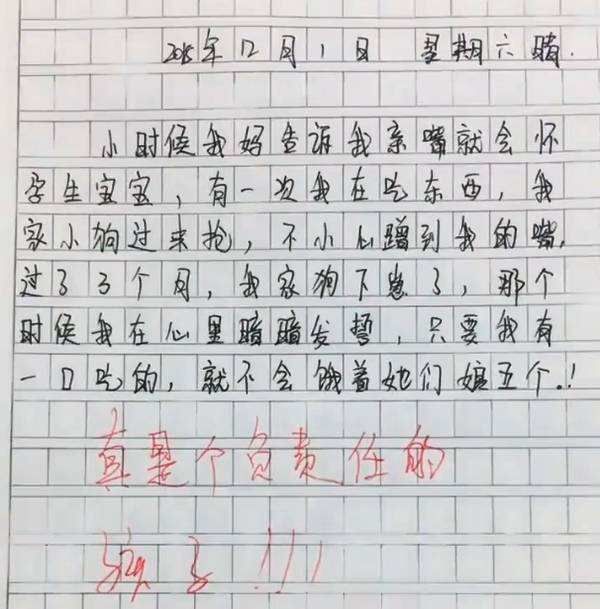 2018年12月1日 星期六 晴.
小时候我妈告诉我亲嘴就会怀
孕生宝宝，有一次我在吃东西，我
家小狗过来抢，不小心蹭到我的嘴.
过了3个月，我家狗下崽了，那个
时候我在心里暗暗发誓，只要我有
一口吃的，就不会饿着她们娘五个.!
真是个负责任的
孩子!!!